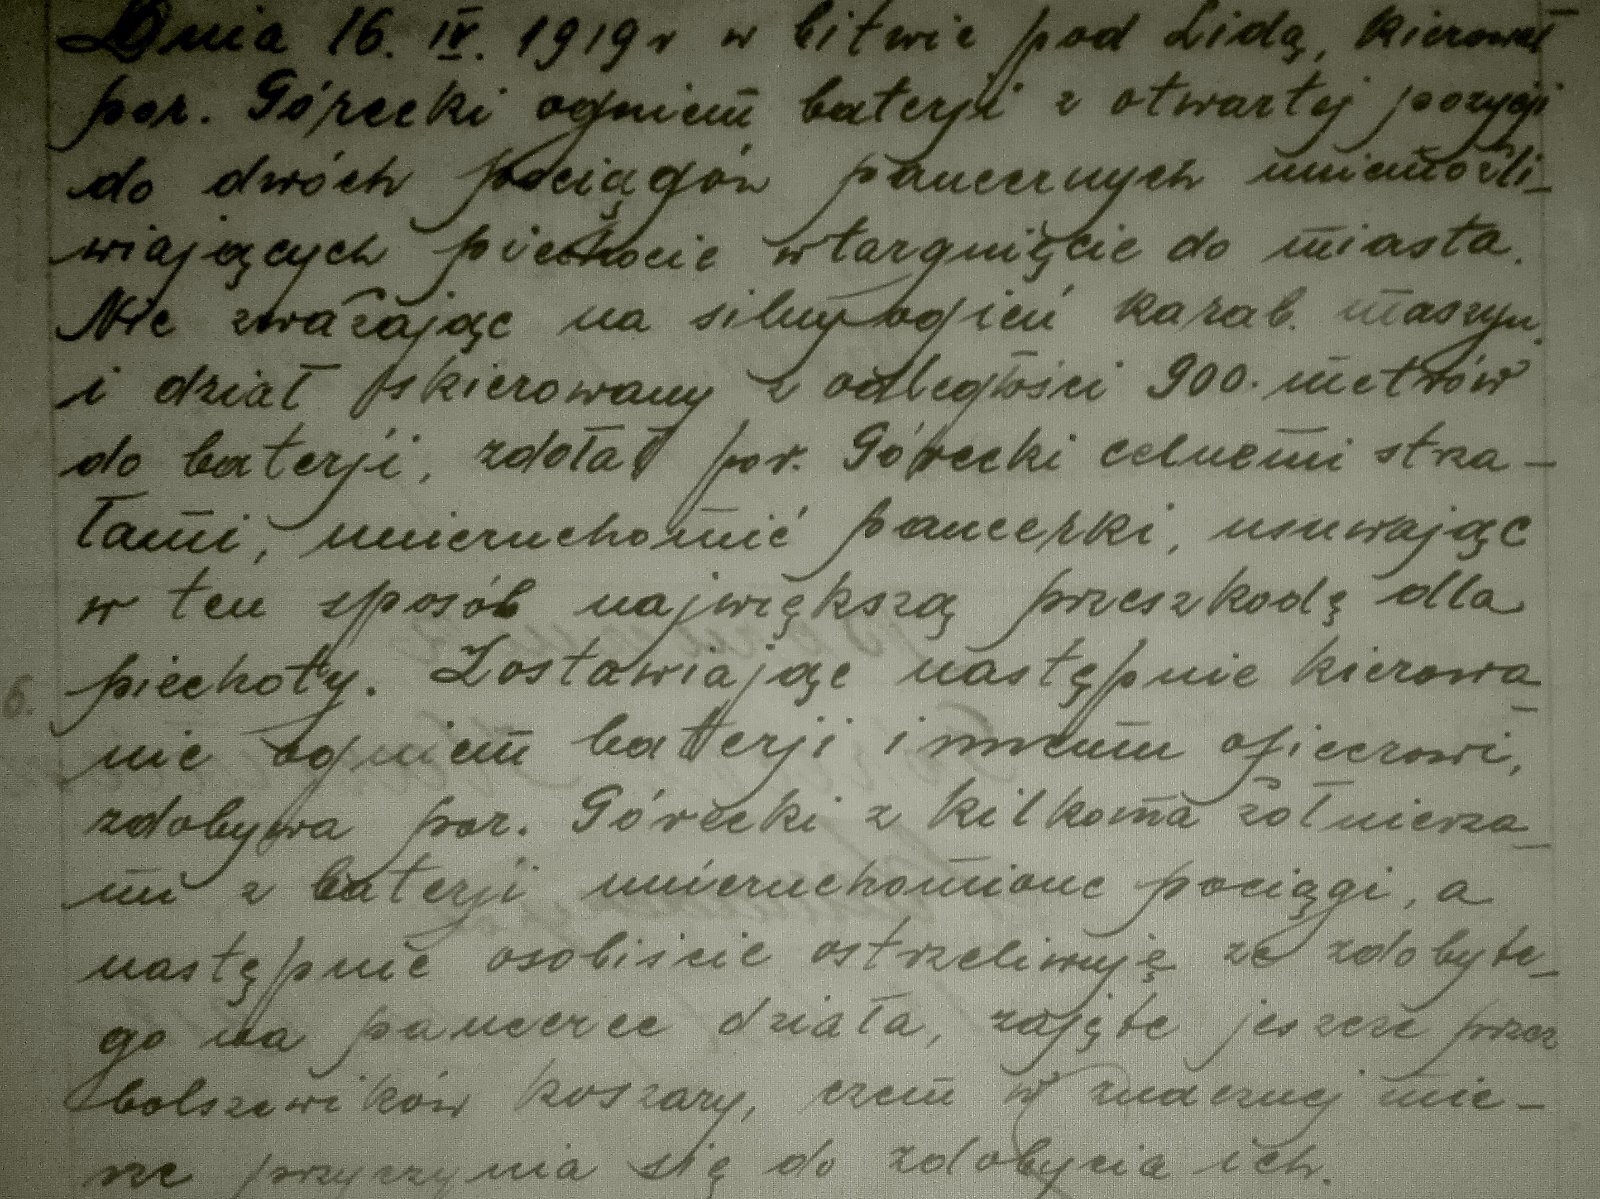 Dnia 16. IV. 1919 r w bitwie pod Lidą, kierował
por. Górecki ogniem baterji z otwartej pozycji
do dwóch pociągów pancernych uniemożli-
wiających piechocie wtargnięcie do miasta.
Nie zważając na silny ogień karab. maszyn.
i dział skierowany z odległości 900. metrów
do baterji, zdołał por. Górecki celnemi strza-
łami, unieruchomić pancerki, usuwając
w ten sposób największą przeszkodę dla
piechoty. Zostawiając następnie kierowa-
nie ogniem baterji innemu oficerowi,
zdobywa por. Górecki z kilkoma żołnierza-
mi z baterji unieruchomione pociągi, a
następnie osobiście ostrzeliwuję ze zdobyte-
go na pancerce działa, zajęte jeszcze przez
bolszewików koszary, czem w znacznej mie-
rze przyczynia się do zdobycia ich.
6.